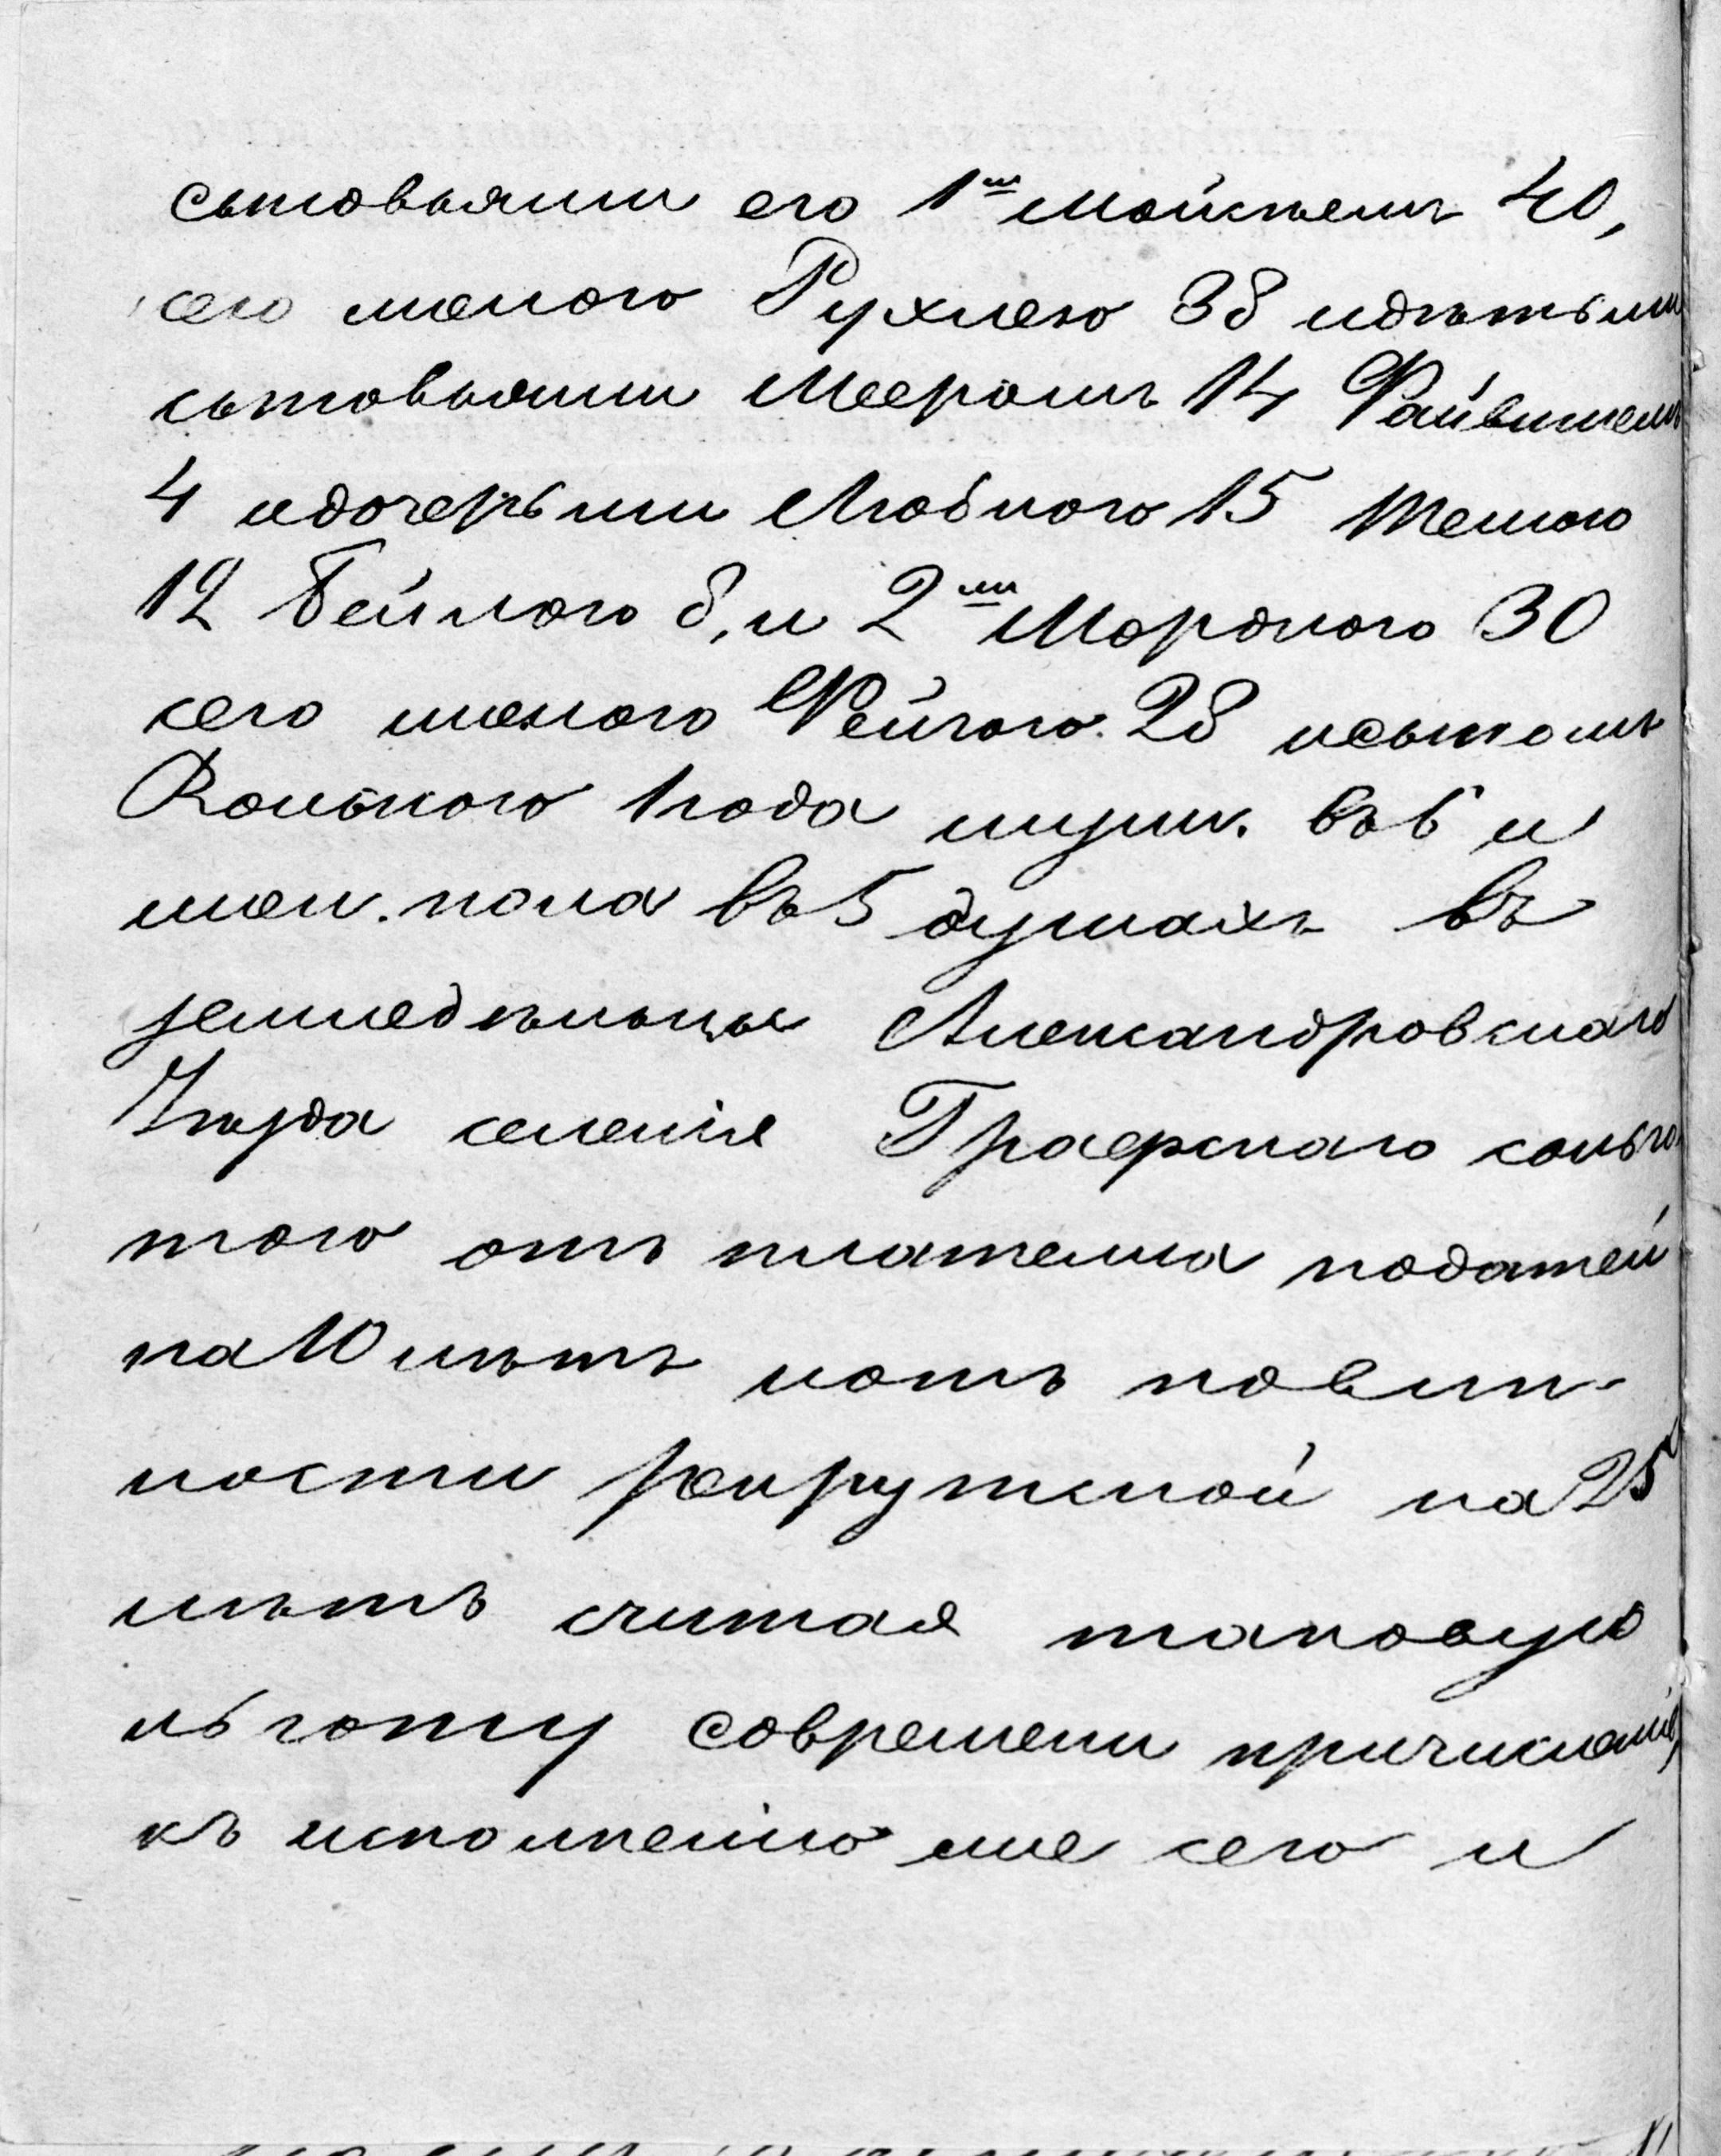 сыновьями его 1<sup>м</sup> Мойсѣемъ 40,
сего женою Рухлею 38 идѣтьми
сыновьями Мееромъ 14 Файвишемъ
4 идочерьми Любною 15 Тешою
12 Бейлою 8, и 2<sup>м</sup> Мордкою 30
сего женою Фейгою. 28 исыномъ
Ролькою 1 года мужж. въ 6 и
жен. пола въ 5 душахъ въ
земледѣльцы Александровскаго
Уѣзда селенія Графскаго сольго
тою отъ платежа податей
на 10 лѣтъ иотъ повин-
ности рекрутской на 25
лѣтъ считая таковую
льготу современи причисленія,
къ исполненію же сего и